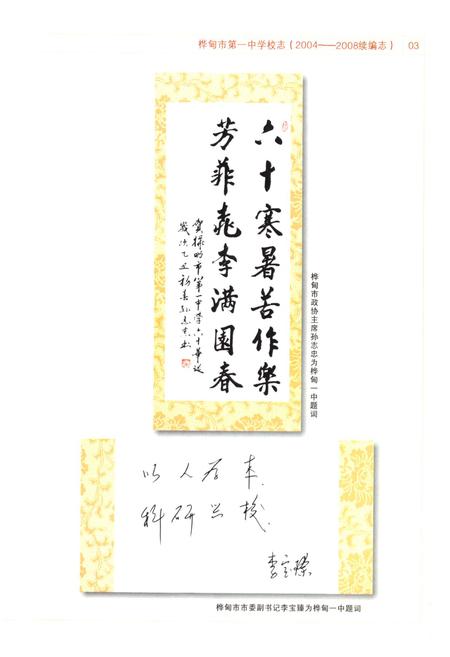 桦甸市第一中学校志（2004——2008续编志） 03
六十寒暑苦作乐
芳菲桃李满园春
贺桦甸市第一中学六十华诞
岁次乙酉新春孙志忠书
桦甸市政协主席孙志忠为桦甸一中题词
以人为本
科研兴校
李宝臻
桦甸市市委副书记李宝臻为桦甸一中题词